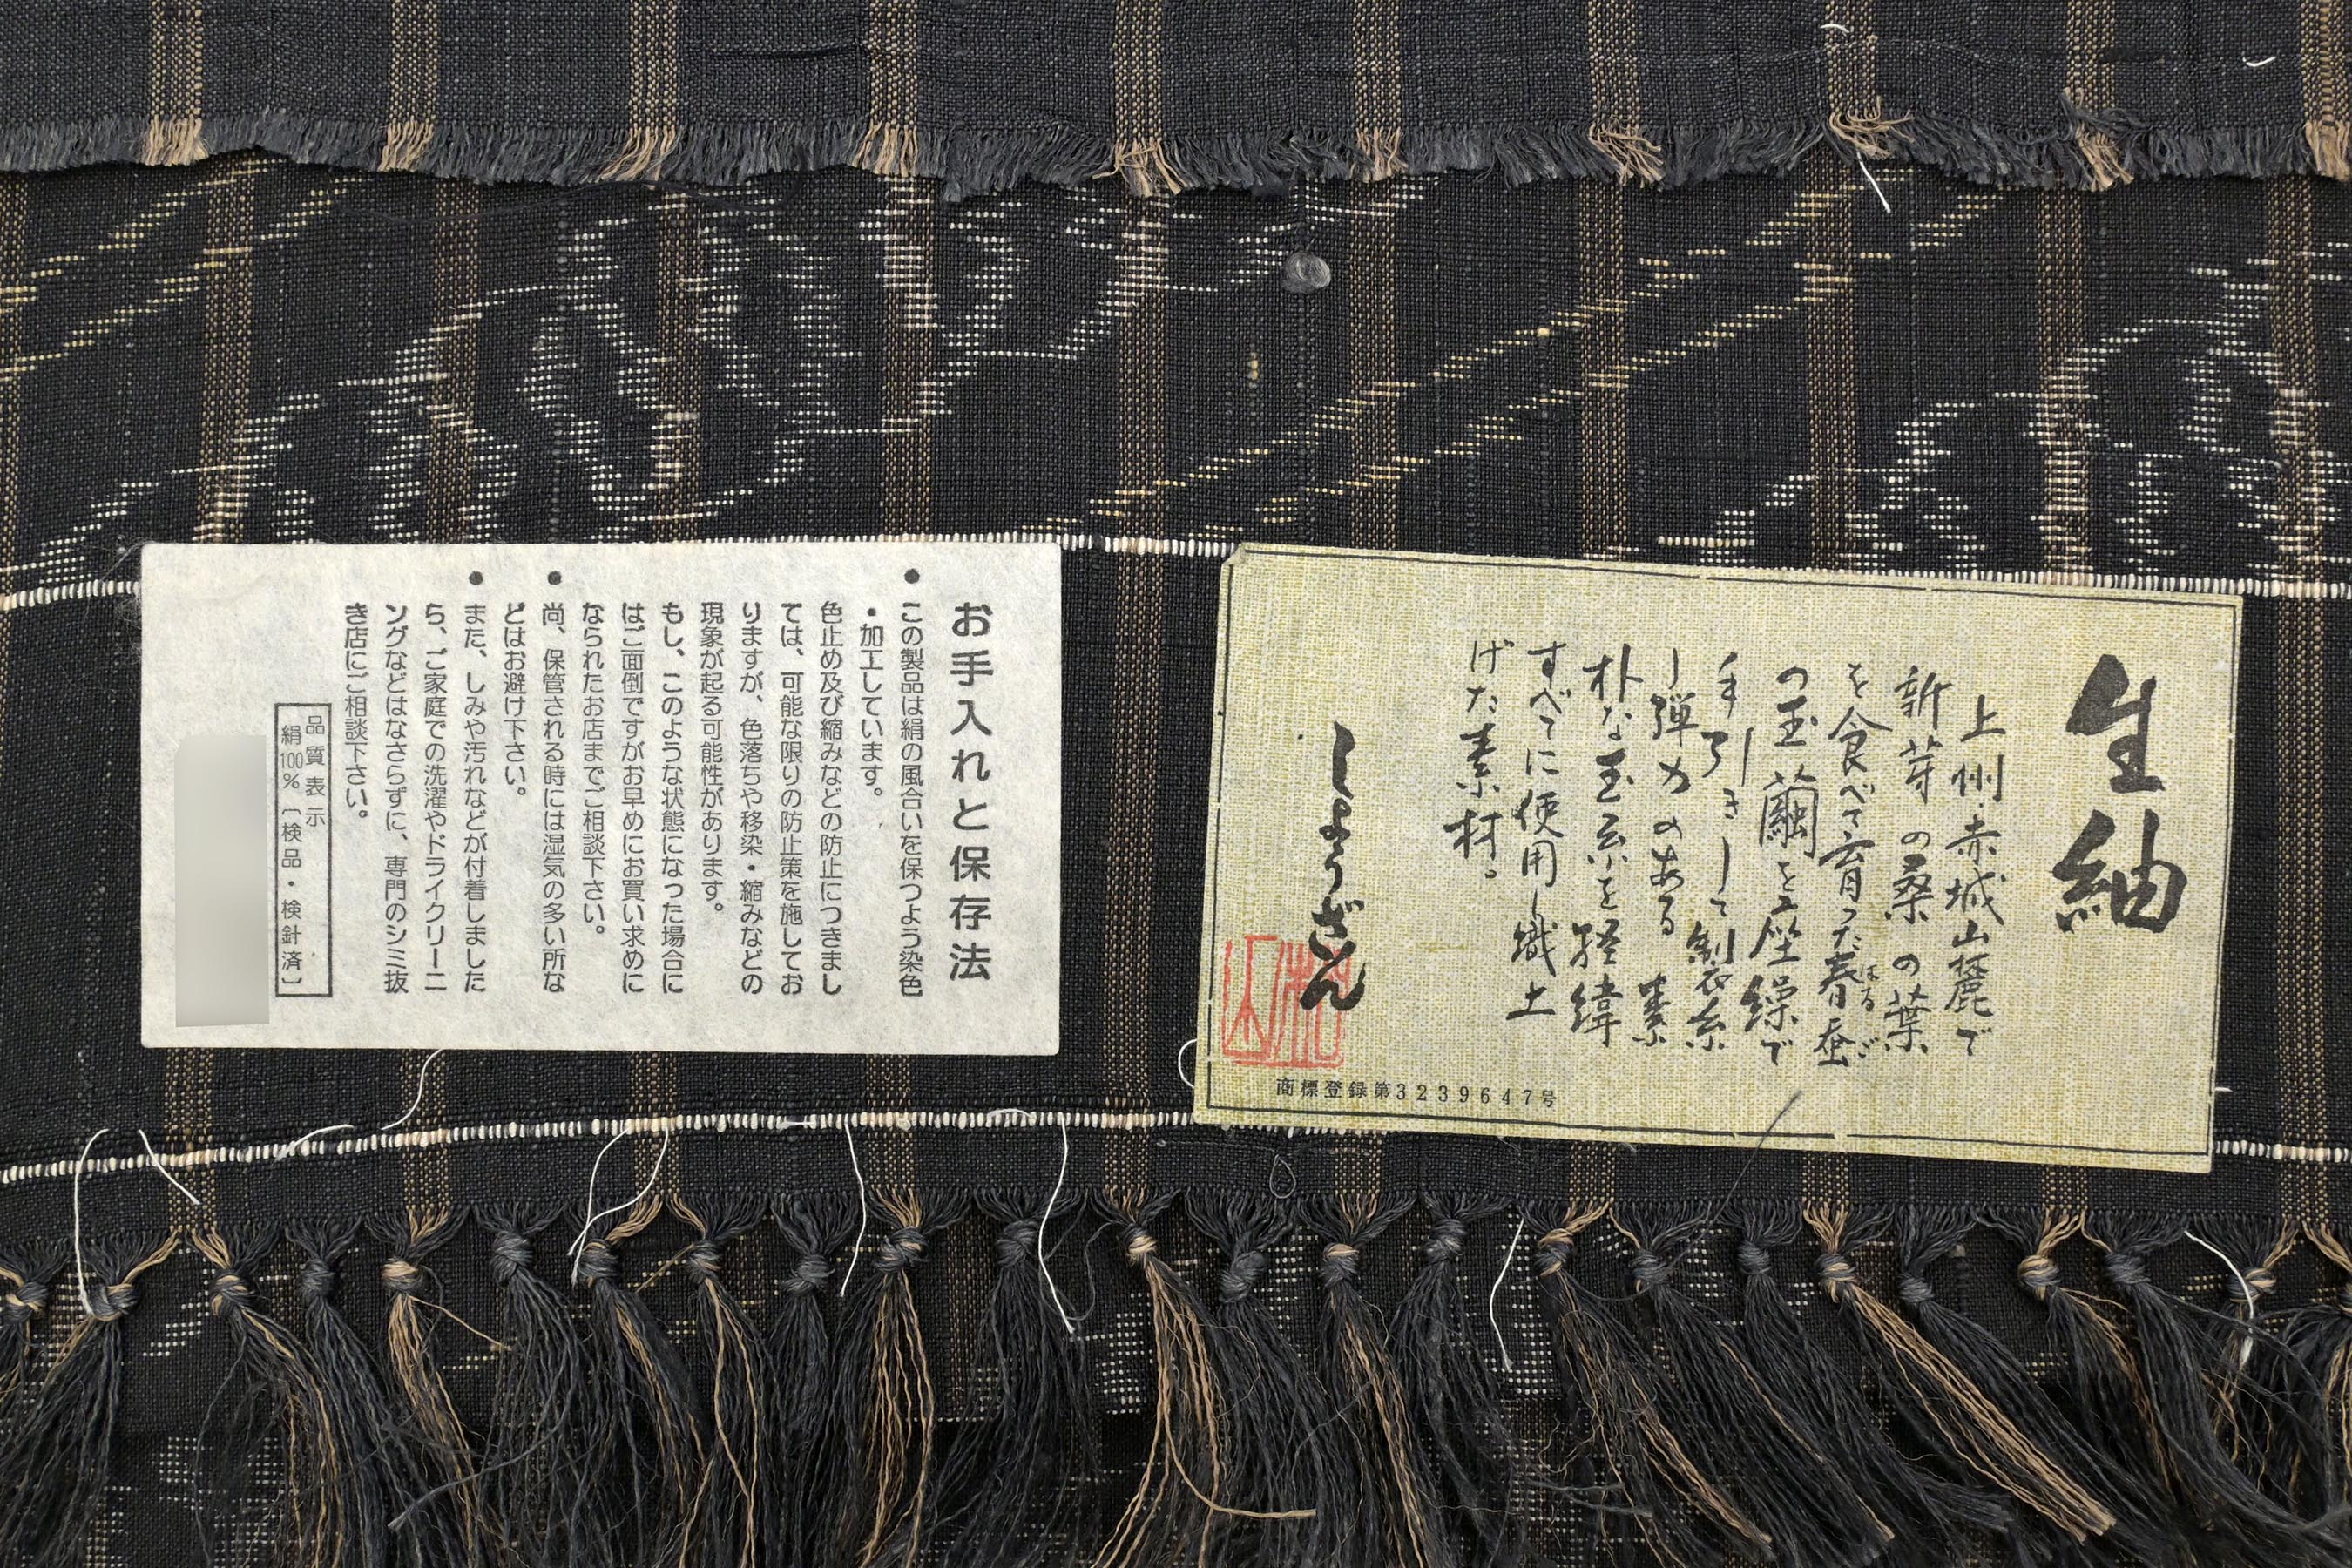 生紬
上州・赤城山麓で
新芽の桑の葉
を食べて育った春蚕
はるご
の玉繭を座繰で
手引きして製糸
し弾力のある素
朴な玉糸を経緯
すべてに使用し織上
げた素材。
しょうざん
商標登録第3239647号
お手入れと保存法
●この製品は絹の風合いを保つよう染色
・加工しています。
色止め及び縮みなどの防止につきまし
ては、可能な限りの防止策を施してお
りますが、色落ちや移染・縮みなどの
現象が起る可能性があります。
もし、このような状態になった場合に
はご面倒ですがお早めにお買い求めに
なられたお店までご相談下さい。
●尚、保管される時には湿気の多い所な
どはお避け下さい。
●また、しみや汚れなどが付着しました
ら、ご家庭での洗濯やドライクリーニ
ングなどはなさらずに、専門のシミ抜
き店にご相談下さい。
品質表示
絹100%〔検品・検針済〕